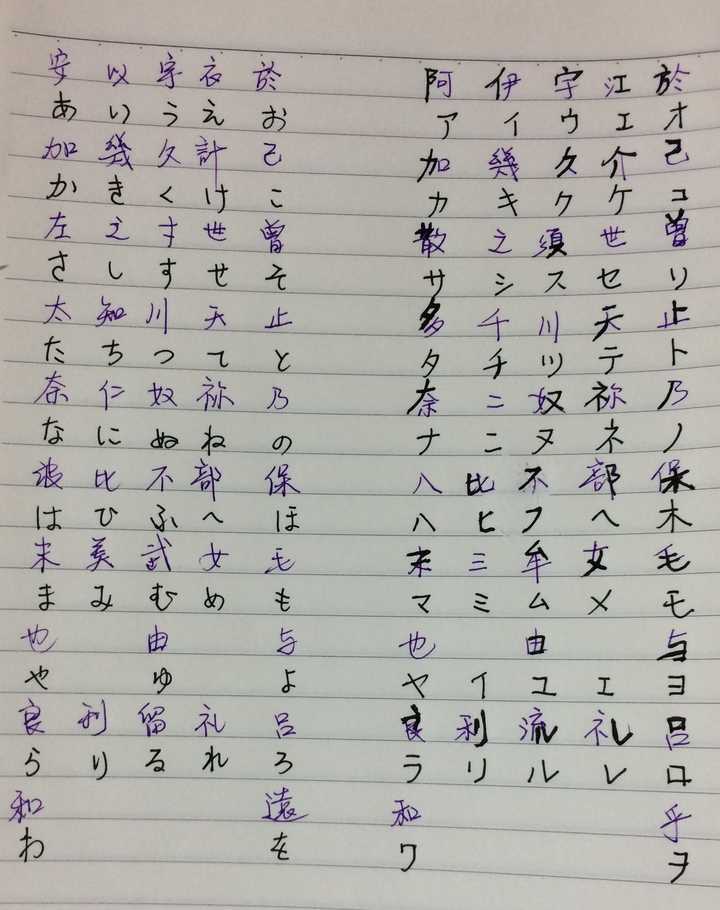 安 以 宇 衣 於 阿 伊 宇 江 於
あ い う え お ア イ ウ エ オ
加 幾 久 計 己 加 幾 久 介 己
か き く け こ カ キ ク ケ コ
左 之 寸 世 曽 散 之 須 世 曽
さ し す せ そ サ シ ス セ ソ
太 知 川 天 止 多 千 川 天 止
た ち つ て と タ チ ツ テ ト
奈 仁 奴 祢 乃 奈 二 奴 祢 乃
な に ぬ ね の ナ ニ ヌ ネ ノ
波 比 不 部 保 八 比 不 部 保
は ひ ふ へ ほ ハ ヒ フ ヘ ホ
末 美 武 女 毛 末 三 牟 女 毛
ま み む め も マ ミ ム メ モ
也 由 与 也 由 与
や ゆ よ ヤ イ ユ エ ヨ
良 利 留 礼 呂 良 利 流 礼 呂
ら り る れ ろ ラ リ ル レ ロ
和 遠 和 乎
わ を ワ ヲ